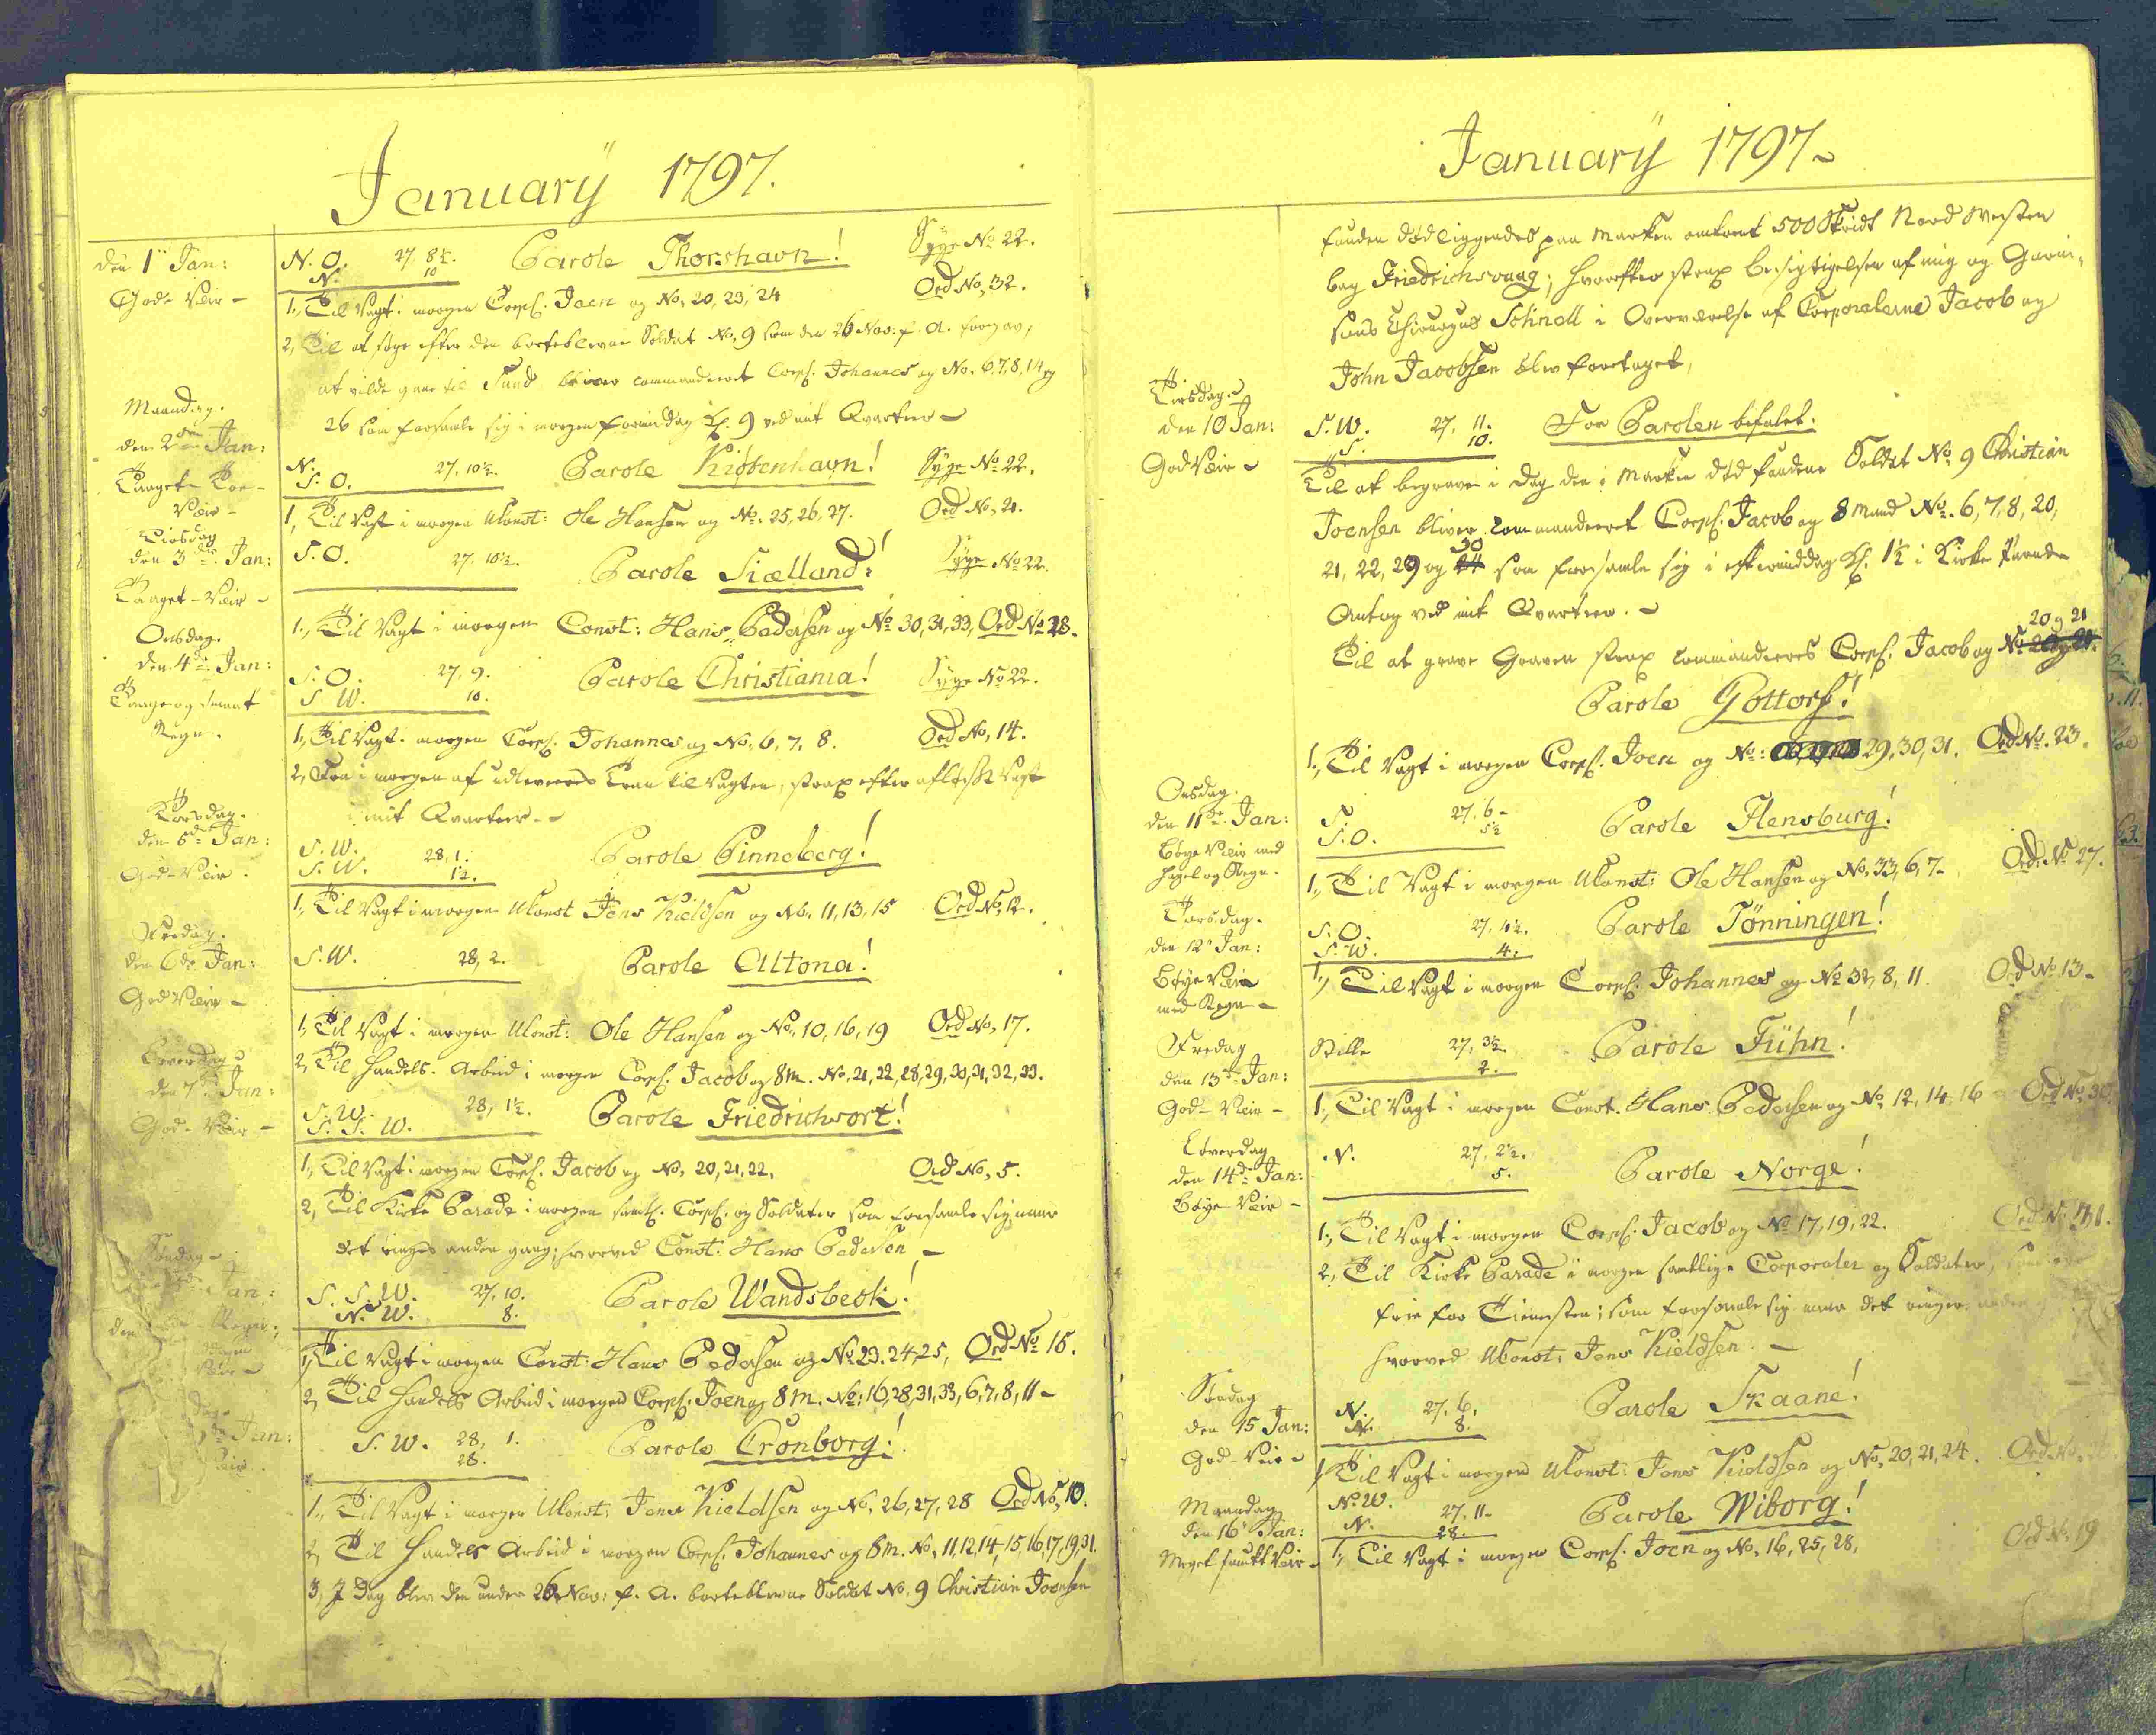 January 1797.
den 1te Jan:
God Veir -
N. O. 27, 8½. Parole Thorshavn! Syge No 22.
N. 10 Ord No, 32.
1, Til Vagt i morgen Corpl. Joen og No, 20, 23, 24
2, Til at søge efter den borteblevne Soldat No, 9 som den 26 Nov: f. A. foregav,
at vilde gaae til Sund bliver commanderet Corpl. Johannes og No. 6, 7, 8, 14 og
26 som forsamle sig i morgen formiddag Kl. 9 ved mit Qvarteer -
Maandag.
den 2den Jan:
Taaget Veir -
N. 27, 10½. Parole Kiøbenhavn! Syge No 22.
S. O.
1, Til Vagt i morgen UConst: Ole Hansen og No. 25, 26, 27. Ord No, 21.
Tirsdag
den 3die Jan:
Taaget - Veir -
S. O. 27, 10½. Parole Siælland! Syge No 22.
1, Til Vagt i morgen Const: Hans Pedersen og No 30, 31, 33, Ord No 28.
Onsdag.
den 4de Jan:
Taage og smaat
Regn.
S. O. 27, 9. Parole Christiania! Syge No 22.
S. W. 10.
1, Til Vagt i morgen Corpl. Johannes og No, 6, 7, 8. Ord No, 14.
2, Fra i morgen af udleveres Tran til Vagten, strax efter afløste Vagt
i mit Qvarteer. -
Torsdag.
den 5de Jan:
God - Veir.
S. W. 28, 1. Parole Pinneberg!
S. W. 1½.
1, Til Vagt i morgen UConst Jens Kieldsen og No, 11, 13, 15 Ord No, 12.
Fredag.
den 6de Jan:
God Veir -
S. W. 28, 2. Parole Altona!
1, Til Vagt i morgen UConst: Ole Hansen og No, 10, 16, 19 Ord No, 17.
2, Til Handels - Arbeid i morgen Corpl. Jacob og 8 M. No, 21, 22, 28, 29, 30, 31, 32, 33.
Løverdag
den 7de Jan:
God - Veir -
S. W. 28, 1½. Parole Friedrichsort!
S. S. W.
1, Til Vagt i morgen Corpl. Jacob og No, 20, 21, 22, Ord No, 5.
2, Til Kirke Parade i morgen samtl. Corpl. og Soldater som forsamle sig naar
det ringes anden gang; hvorved Const: Hans Pedersen -
Søndag -
Jan:
S. S. W. 27, 10. Parole Wandsbeck!
N. W. 8.
1, Til Vagt i morgen Const: Hans Pedersen og No 23. 24, 25, Ord No 15.
2, Til Handels Arbeid i morgen Corpl. Joen og 8 M. No: 16, 28, 31, 33, 6, 7, 8, 11 -
Jan:
S. W. 28, 1. Parole Cronborg!
28.
1, Til Vagt i morgen UConst: Jens Kieldsen og No, 26, 27, 28 Ord No, 10.
2, Til Handels Arbeid i morgen Corpl. Johannes og 8 M. No, 11, 12, 14, 15, 16, 17, 19, 31.
3, I Dag blev den under 26 Nov: f. A. bortblevne Soldat No. 9 Christian Joensen
January 1797 -
funden død liggendes paa Marken omtrent 500 Skridt Nord Westen
bag Friedrichsvaag; hvorefter strax Besigtigelsen af mig og Garni-
sons Chirurgus Schnell i Overværelse af Corporalerne Jacob og
John Jacobsen blev foretaget,
Tirsdag -
den 10 Jan:
God Veir -
S. W. 27, 11. For Parolen befalet.
S. 10.
Til at begrave i Dag den i Marken død fundne Soldat No 9 Christian
Joensen bliver commanderet Corpl. Jacob og 8 Mand No. 6, 7, 8, 20,
21, 22, 29 og 30 som forsamle sig i eftermiddag Kl. 1½ i Kirke Parade
Antog ved mit Qvarteer. -
Til at grave Graven strax commanderes Corpl. Jacob og No 20 og 21
Parole Gottorf!
1, Til Vagt i morgen Corpl. Joen og No: 29, 30, 31. Ord No. 23.
Onsdag.
den 11te Jan:
Bøye Veir med
Hagel og Regn.
S. 27, 6 - Parole Flensburg!
S. O. 5½
1, Til Vagt i morgen UConst: Ole Hansen og No, 33, 6, 7 - Ord. No 27.
Torsdag.
den 12te Jan:
Bøye Veir
med Regn -
S. O. 27, 4½. Parole Tønningen!
S. W. 4.
1, Til Vagt i morgen Corpl. Johannes og No 32, 8, 11. Ord No 13 -
Fredag
den 13de Jan:
God - Veir -
Stille 27, 3½. Parole Fühn!
2.
1, Til Vagt i morgen Const. Hans Pedersen og No 12, 14, 16 Ord No 30.
Løverdag
den 14de Jan:
Bøye Veir -
N. 27, 2½. Parole Norge!
5.
1, Til Vagt i morgen Corpl. Jacob og No 17, 19, 22. Ord No 31.
2, Til Kirke Parade i morgen samtlige Corporaler og Soldater, som ere
frie for Tienesten; som forsamle sig naar det ringer anden
hvorved UConst: Jens Kieldsen. -
Søndag
den 15 Jan:
God - Veir -
N. 27, 6. Parole Skaane!
N. 8.
1, Til Vagt i morgen UConst: Jens Kieldsen og No, 20, 21, 24. Ord No,
Maandag
den 16te Jan:
Meget smukt Veir -
N. W. 27, 11 - Parole Wiborg!
N. 28.
1, Til Vagt i morgen Corpl. Joen og No, 16, 25, 28, Ord No 19